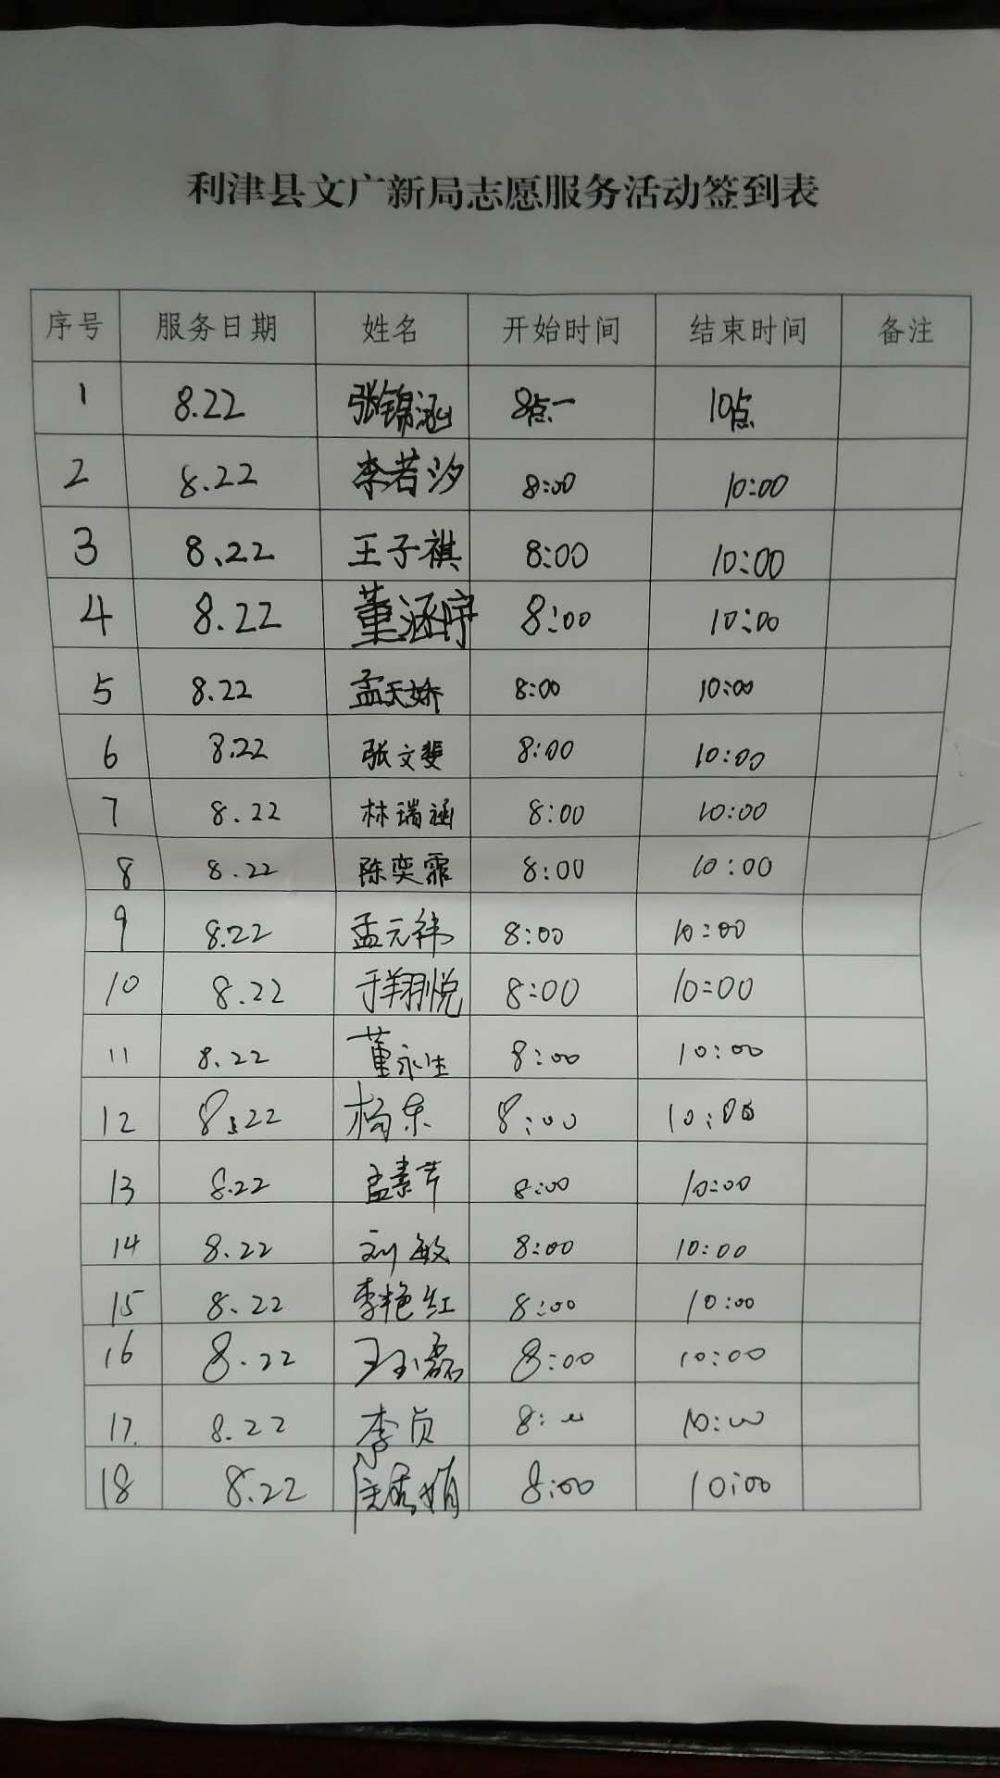 利津县文广新局志愿服务活动签到表
序号 服务日期 姓名 开始时间 结束时间 备注
1 8.22 张锦涵 8点一 10点
2 8.22 李若汐 8:00 10:00
3 8.22 王子祺 8:00 10:00
4 8.22 董涵宇 8:00 10:00
5 8.22 孟天娇 8:00 10:00
6 8.22 张文斐 8:00 10:00
7 8.22 林瑞涵 8:00 10:00
8 8.22 陈奕霏 8:00 10:00
9 8.22 孟元祎 8:00 10:00
10 8.22 于翔悦 8:00 10:00
11 8.22 董永生 8:00 10:00
12 8.22 杨东 8:00 10:00
13 8.22 孟素芹 8:00 10:00
14 8.22 刘敏 8:00 10:00
15 8.22 李艳红 8:00 10:00
16 8.22 王玉磊 8:00 10:00
17. 8.22 李贞 8:00 10:00
18 8.22 8:00 10:00